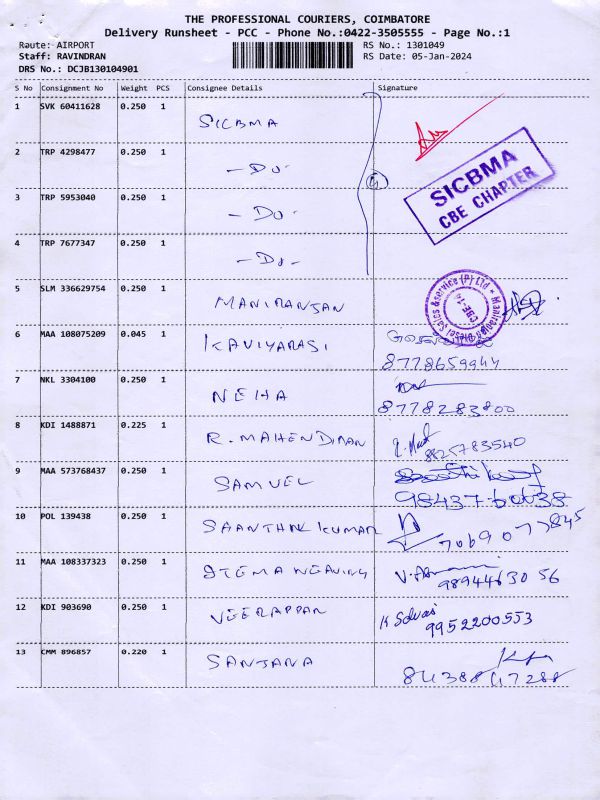 THE PROFESSIONAL COURIERS, COIMBATORE
Delivery Runsheet - PCC - Phone No.:0422-3505555 - Page No.:1
Route: AIRPORT RS No.: 1301049
Staff: RAVINDRAN RS Date: 05-Jan-2024
DRS No.: DCJB130104901
S No Consignment No Weight PCS Consignee Details Signature
1 SVK 60411628 0.250 1 SICBMA
2 TRP 4298477 0.250 1 - Do -
SICBMA
CBE CHAPTER
3 TRP 5953040 0.250 1 - Do -
4 TRP 7677347 0.250 1 - Do -
5 SLM 336629754 0.250 1 MANIRANJAN
6 MAA 108075209 0.045 1 KAVIYARASI
8778659944
7 NKL 3304100 0.250 1 NEHA
8778283800
8 KDI 1488871 0.225 1 R. MAHENDIRAN
8825783540
9 MAA 573768437 0.250 1 SAMUEL
9843760038
10 POL 139438 0.250 1 SAANTHNI KUMAR
7069077845
11 MAA 108337323 0.250 1 ITEMA WEAVING
9894463056
12 KDI 903690 0.250 1 VEERAPPAN K Selvai
9952200553
13 CMM 896857 0.220 1 SANJANA
8438847288